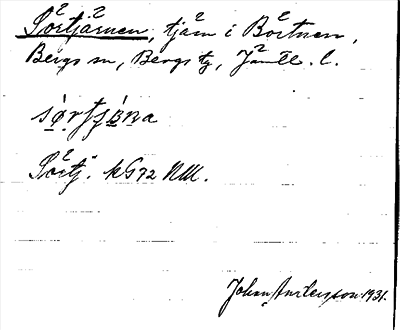 Sörtjärnen, tjärn i Börtnen,
Bergs sn, Bergs tg, Jämtl. l.
Sörtj. kG72 NW.
Johan Anderson 1931.